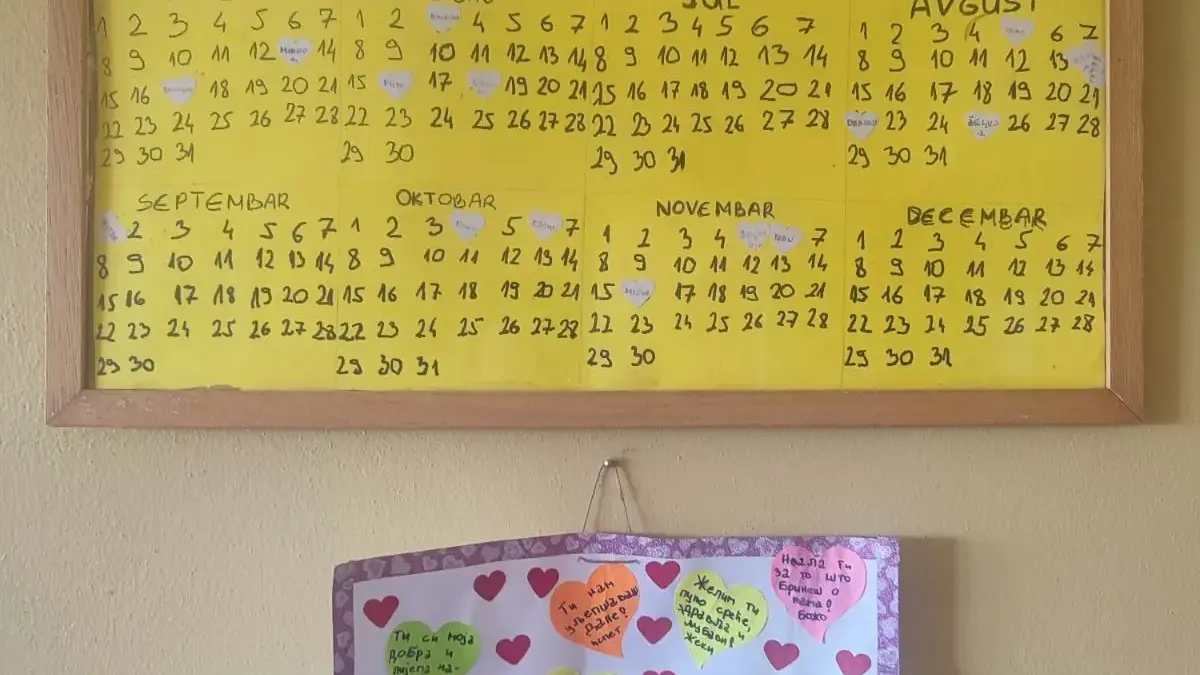 JUL
AVGUST
1 2 3 4 5 6 7 1 2 4 5 6 7 1 2 3 4 5 6 7 1 2 3 4 6 7
8 9 10 11 12 14 8 9 10 11 12 13 14 8 9 10 11 12 13 14 8 9 10 11 12 13
15 16 18 19 20 21 15 17 19 20 21 15 16 17 18 19 20 21 15 16 17 18 19 20 21
22 23 24 25 26 27 28 22 23 24 25 26 27 28 22 23 24 25 26 27 28 23 24 26 27 28
29 30 31 29 30 29 30 31 29 30 31
SEPTEMBAR OKTOBAR NOVEMBAR DECEMBAR
2 3 4 5 6 7 1 2 3 5 7 1 2 3 4 7 1 2 3 4 5 6 7
8 9 10 11 12 13 14 8 9 10 11 12 13 14 8 9 10 11 12 13 14 8 9 10 11 12 13 14
15 16 17 18 19 20 21 15 16 17 18 19 20 21 15 17 18 19 20 21 15 16 17 18 19 20 21
22 23 24 25 26 27 28 22 23 24 25 26 27 28 22 23 24 25 26 27 28 22 23 24 25 26 27 28
29 30 29 30 31 29 30 29 30 31
Ти си моја
добра и
лијепа на-
Ти нам
уљепшаваш
дане!
Желим ти
пуно среће,
здравља и
љубави!
Жеки
Хвала ти
за то што
бринеш о
нама!
Божо